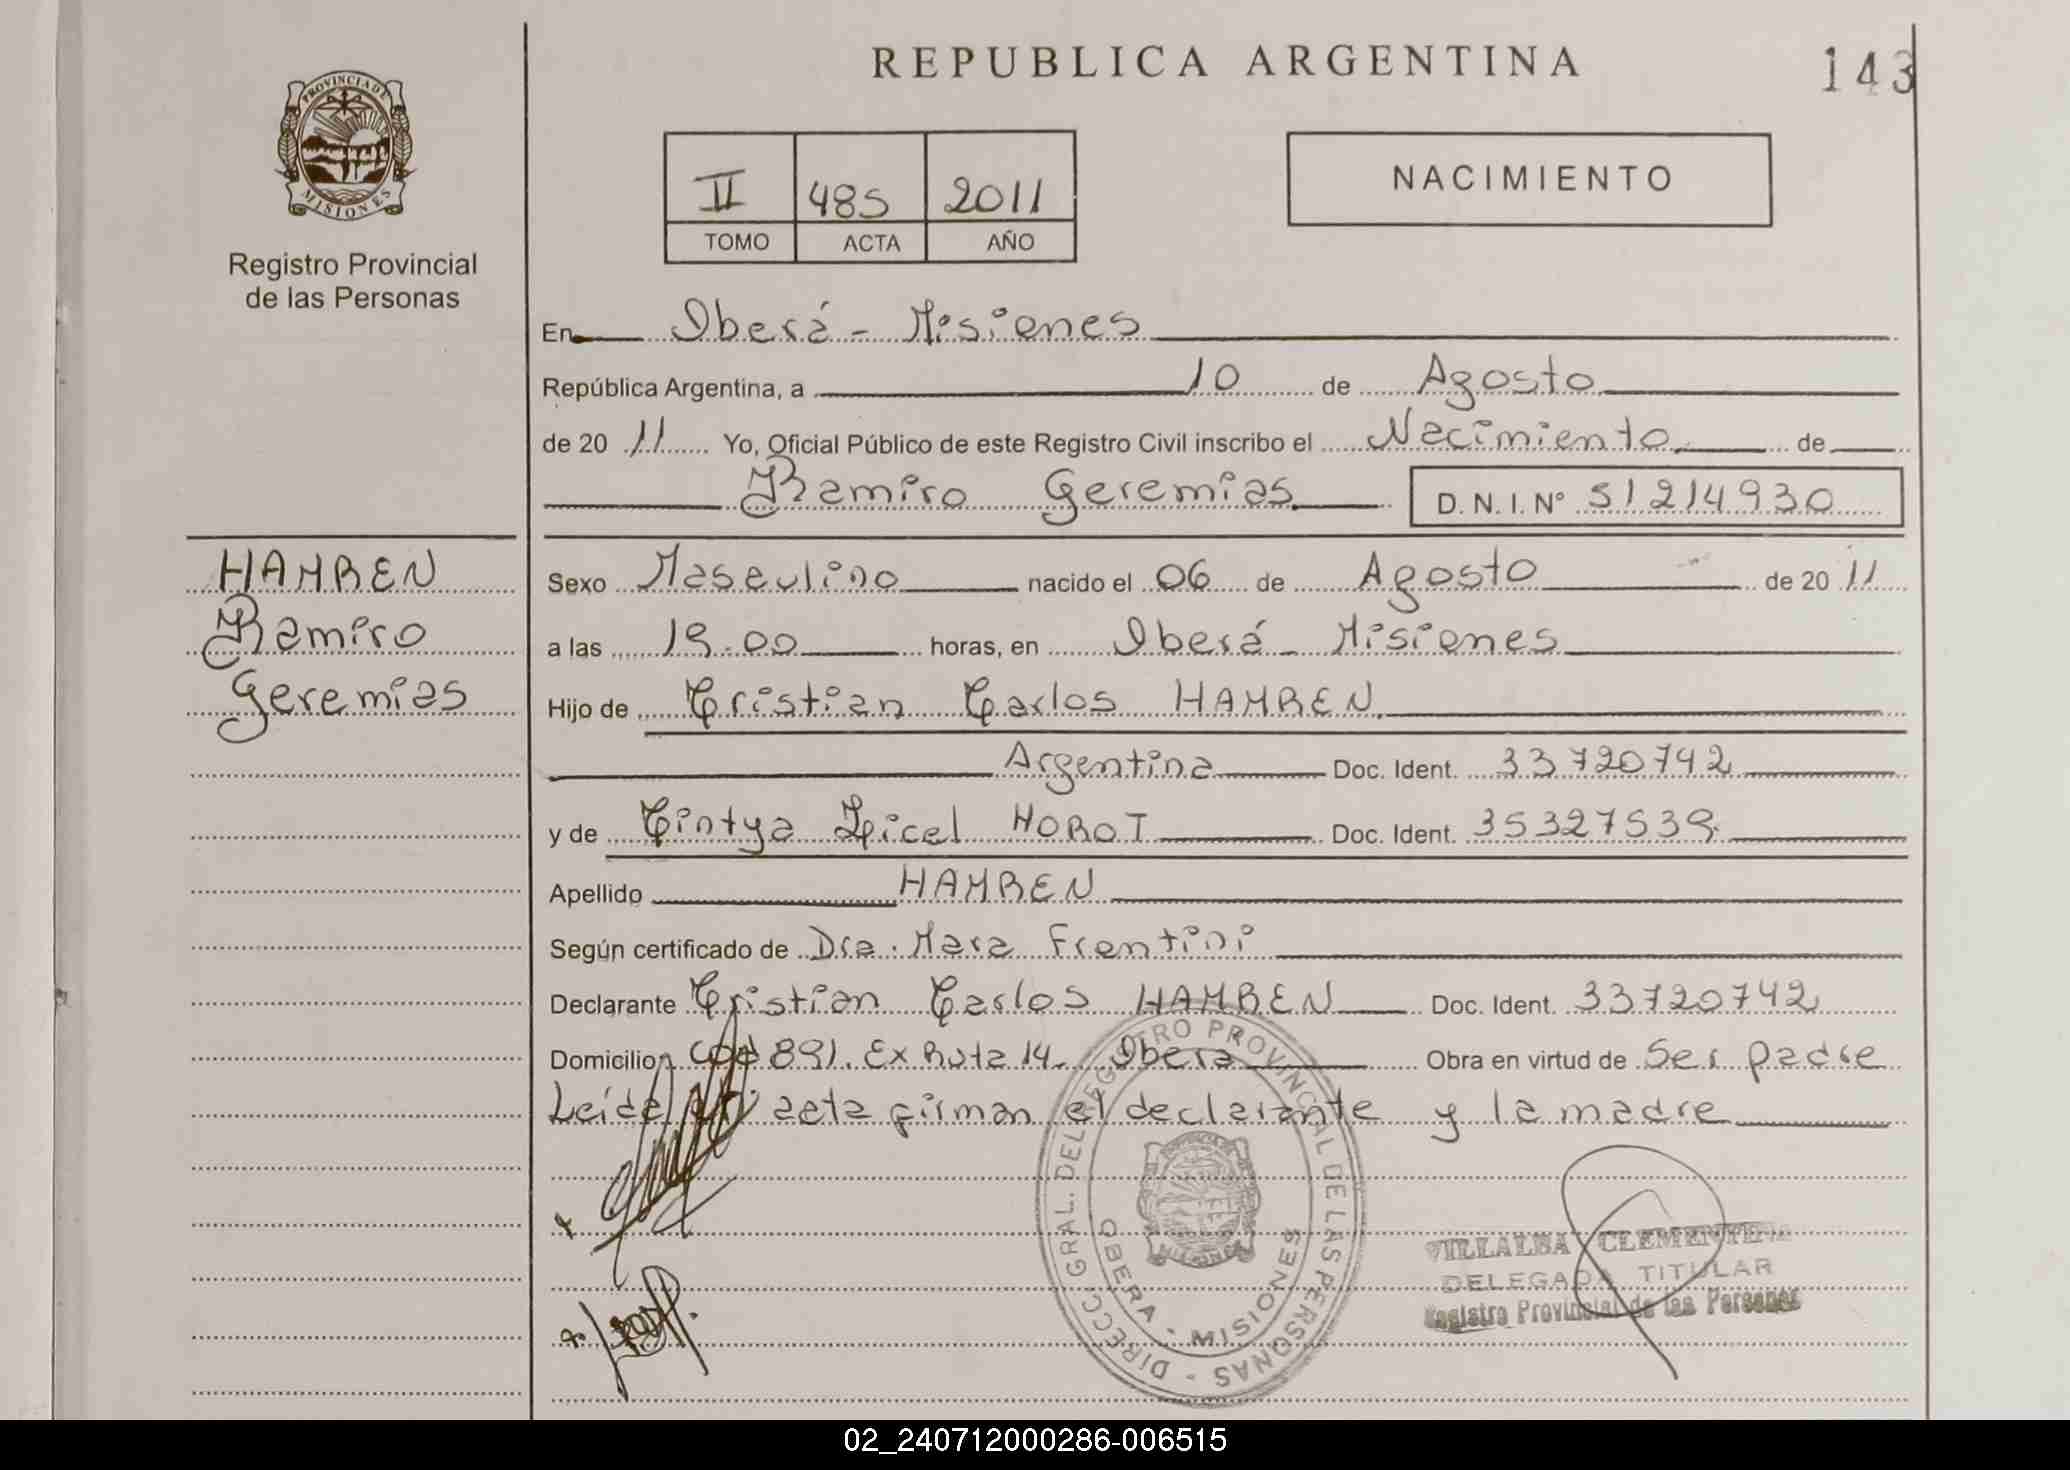 REPUBLICA ARGENTINA
143
PROVINCIA DE
MISIONES
Registro Provincial
de las Personas
II 485 2011
TOMO ACTA AÑO
NACIMIENTO
En Oberá - Misiones
República Argentina, a 10 de Agosto
de 20 11 Yo, Oficial Público de este Registro Civil inscribo el Nacimiento de
Ramiro Geremias D. N. I. Nº 51214930
HAMREN
Ramiro
Geremias
Sexo Masculino nacido el 06 de Agosto de 20 11
a las 19.00 horas, en Oberá - Misiones
Hijo de Cristian Carlos HAMREN
Argentina Doc. Ident. 33720742
y de Cintya Licel MOROT Doc. Ident. 35327539
Apellido HAMREN
Según certificado de Dra. Mara Frentini
Declarante Cristian Carlos HAMREN Doc. Ident. 33720742
Domicilio 891. Ex Ruta 14. Obera Obra en virtud de Ser padre
Leída acta firman el declarante y la madre
DIRECC. GRAL. DEL REGISTRO PROVINCIAL DE LAS PERSONAS
OBERA - MISIONES
VILLALBA CLEMENTINA
DELEGADA TITULAR
Registro Provincial de las Personas
02_240712000286-006515